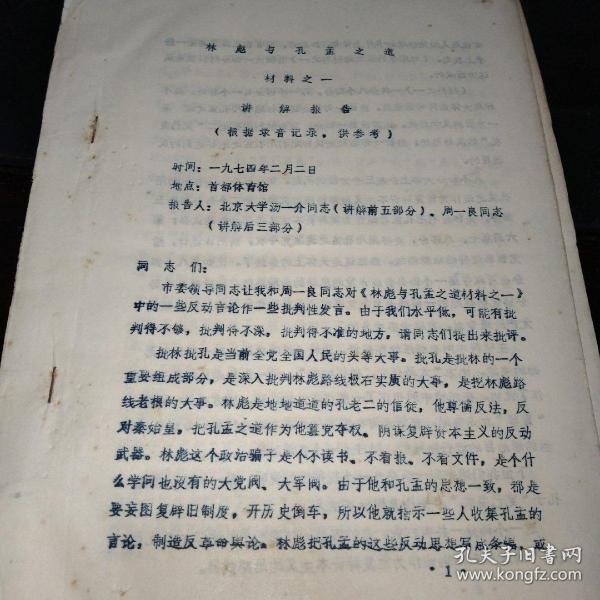 林彪与孔孟之道
材料之一
讲解报告
（根据录音记录，供参考）
时间：一九七四年二月二日
地点：首都体育馆
报告人：北京大学汤一介同志（讲解前五部分）、周一良同志
（讲解后三部分）
同志们：
市委领导同志让我和周一良同志对《林彪与孔孟之道材料之一》
中的一些反动言论作一些批判性发言。由于我们水平低，可能有批
判得不够，批判得不深，批判得不准的地方，请同志们提出来批评。
批林批孔是当前全党全国人民的头等大事。批孔是批林的一个
重要组成部分，是深入批判林彪路线极右实质的大事，是挖林彪路
线老根的大事。林彪是地地道道的孔老二的信徒，他尊儒反法，反
对秦始皇，把孔孟之道作为他篡党夺权、阴谋复辟资本主义的反动
武器。林彪这个政治骗子是个不读书、不看报、不看文件，是个什
么学问也没有的大党阀、大军阀。由于他和孔孟的思想一致，都是
要妄图复辟旧制度，开历史倒车，所以他就指示一些人收集孔孟的
言论，制造反革命舆论。林彪把孔孟的这些反动思想写成条幅，或
·1·
孔夫子旧书网
www.kongfz.com